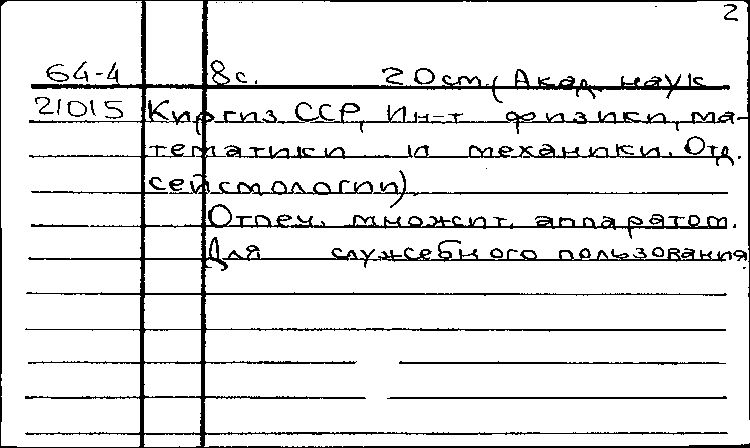 2
64-4 8с. 20см. (Акад. наук
21015 Киргиз. ССР, Ин-т физики, ма-
тематики и механики. Отд.
сейсмологии).
Отпеч. множит. аппаратом.
Для служебного пользования